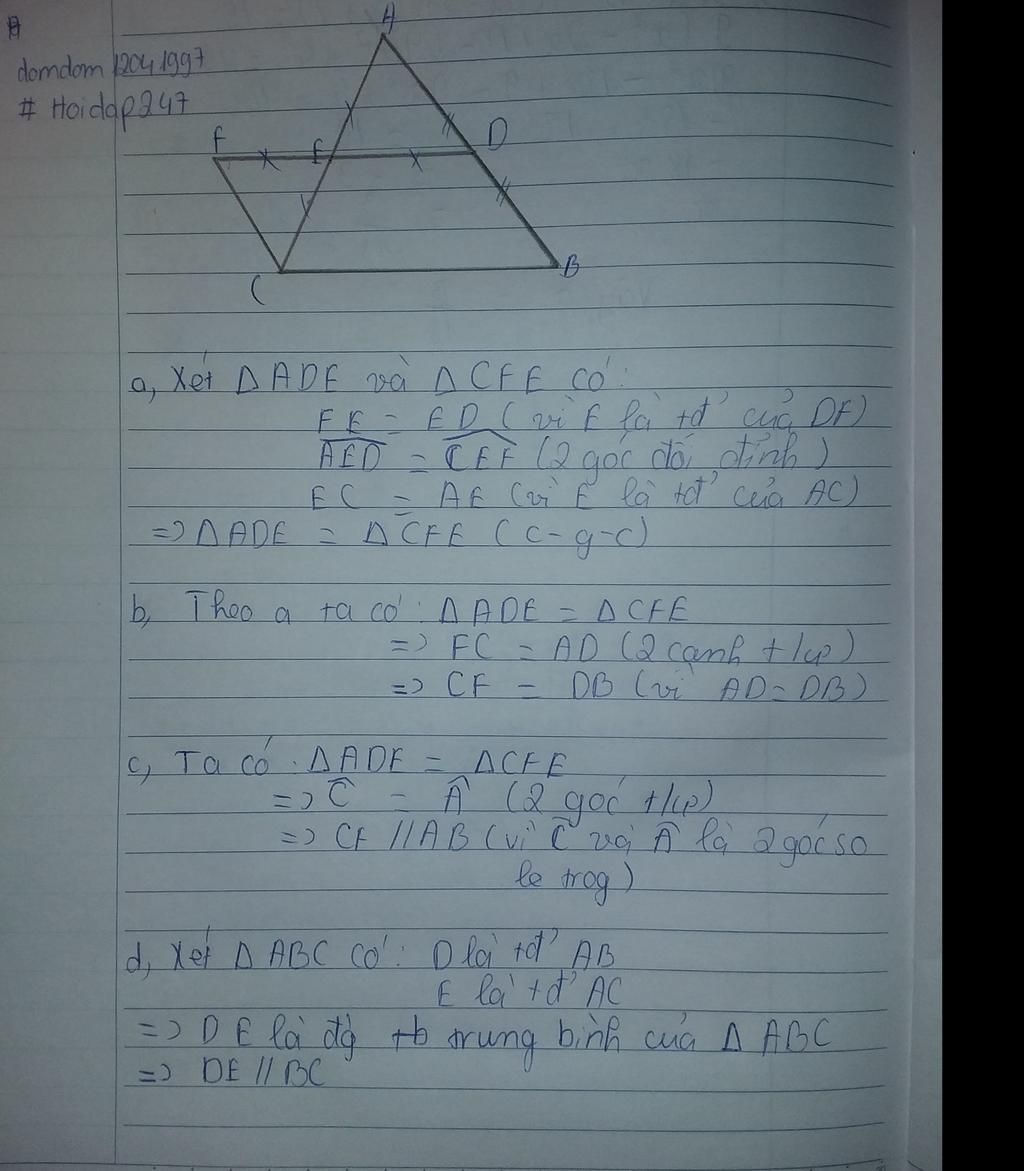 domdom 12041997
# Hoidap247
A
F
E
D
C
B
a, Xét Δ ADE và Δ CFE có:
FE = ED (vì E là tđ' của DF)
AED = CEF (2 góc đối đỉnh)
EC = AE (vì E là tđ' của AC)
=> Δ ADE = Δ CFE (c-g-c)
b, Theo a ta có: Δ ADE = Δ CFE
=> FC = AD (2 cạnh t/ư)
=> CF = DB (vì AD = DB)
c, Ta có: Δ ADE = Δ CFE
=> Ĉ = Â (2 góc t/ư)
=> CF // AB (vì Ĉ và Â là 2 góc so
le trog)
d, Xét Δ ABC có: D là tđ' AB
E là tđ' AC
=> DE là đg tb trung bình của Δ ABC
=> DE // BC